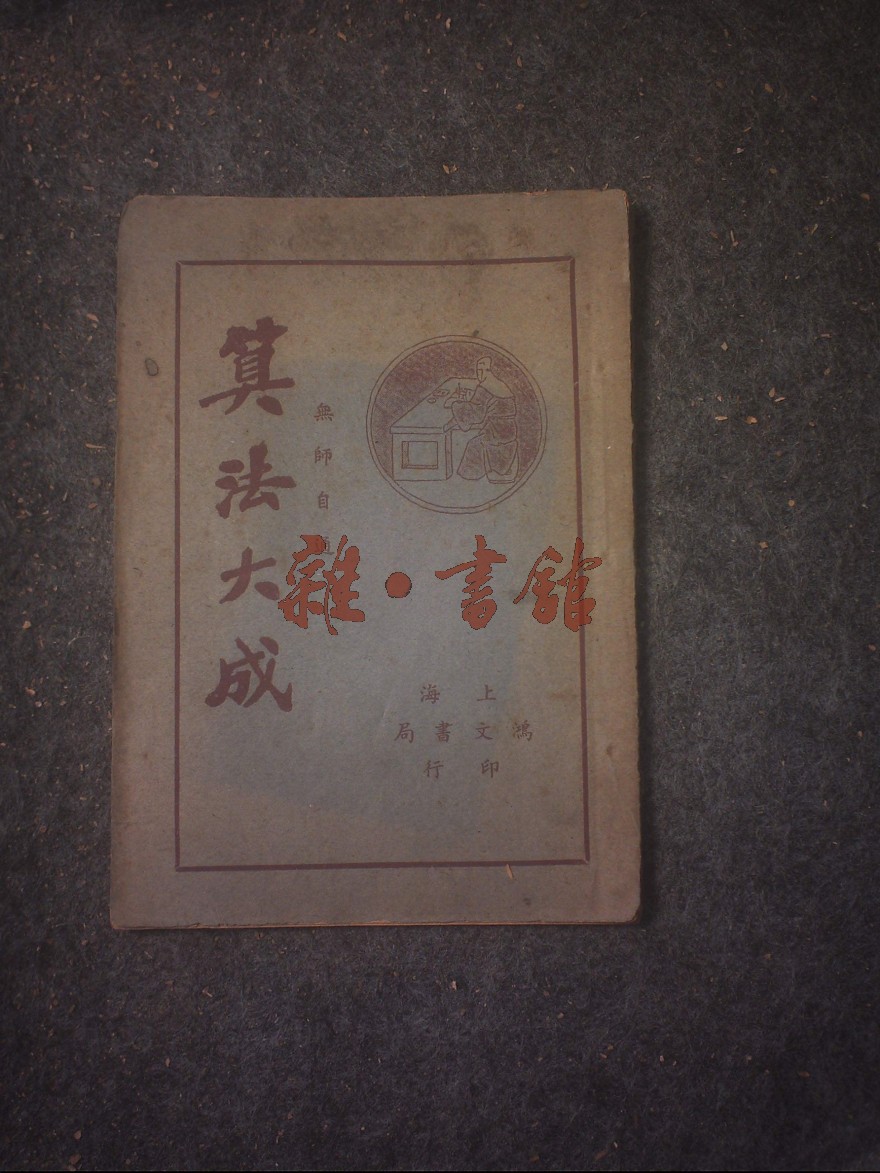 算法大成
無師自通
上海
鴻文書局
印行
雜·書館